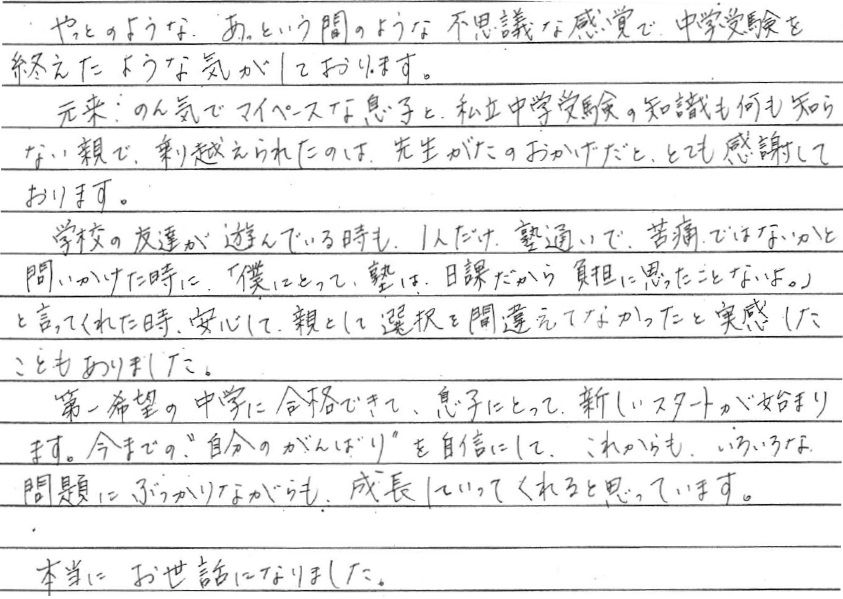 やっとのような、あっという間のような不思議な感覚で、中学受験を
終えたような気がしております。
元来、のん気でマイペースな息子と、私立中学受験の知識も何も知ら
ない親で、乗り越えられたのは、先生がたのおかげだと、とても感謝して
おります。
学校の友達が遊んでいる時も、1人だけ、塾通いで、苦痛ではないかと
問いかけた時に、「僕にとって、塾は、日課だから負担に思ったことないよ。」
と言ってくれた時、安心して、親として選択を間違えてなかったと実感した
こともありました。
第一希望の中学に合格できて、息子にとって、新しいスタートが始まり
ます。今までの、"自分のがんばり"を自信にして、これからも、いろいろな
問題にぶつかりながらも、成長していってくれると思っています。
本当にお世話になりました。